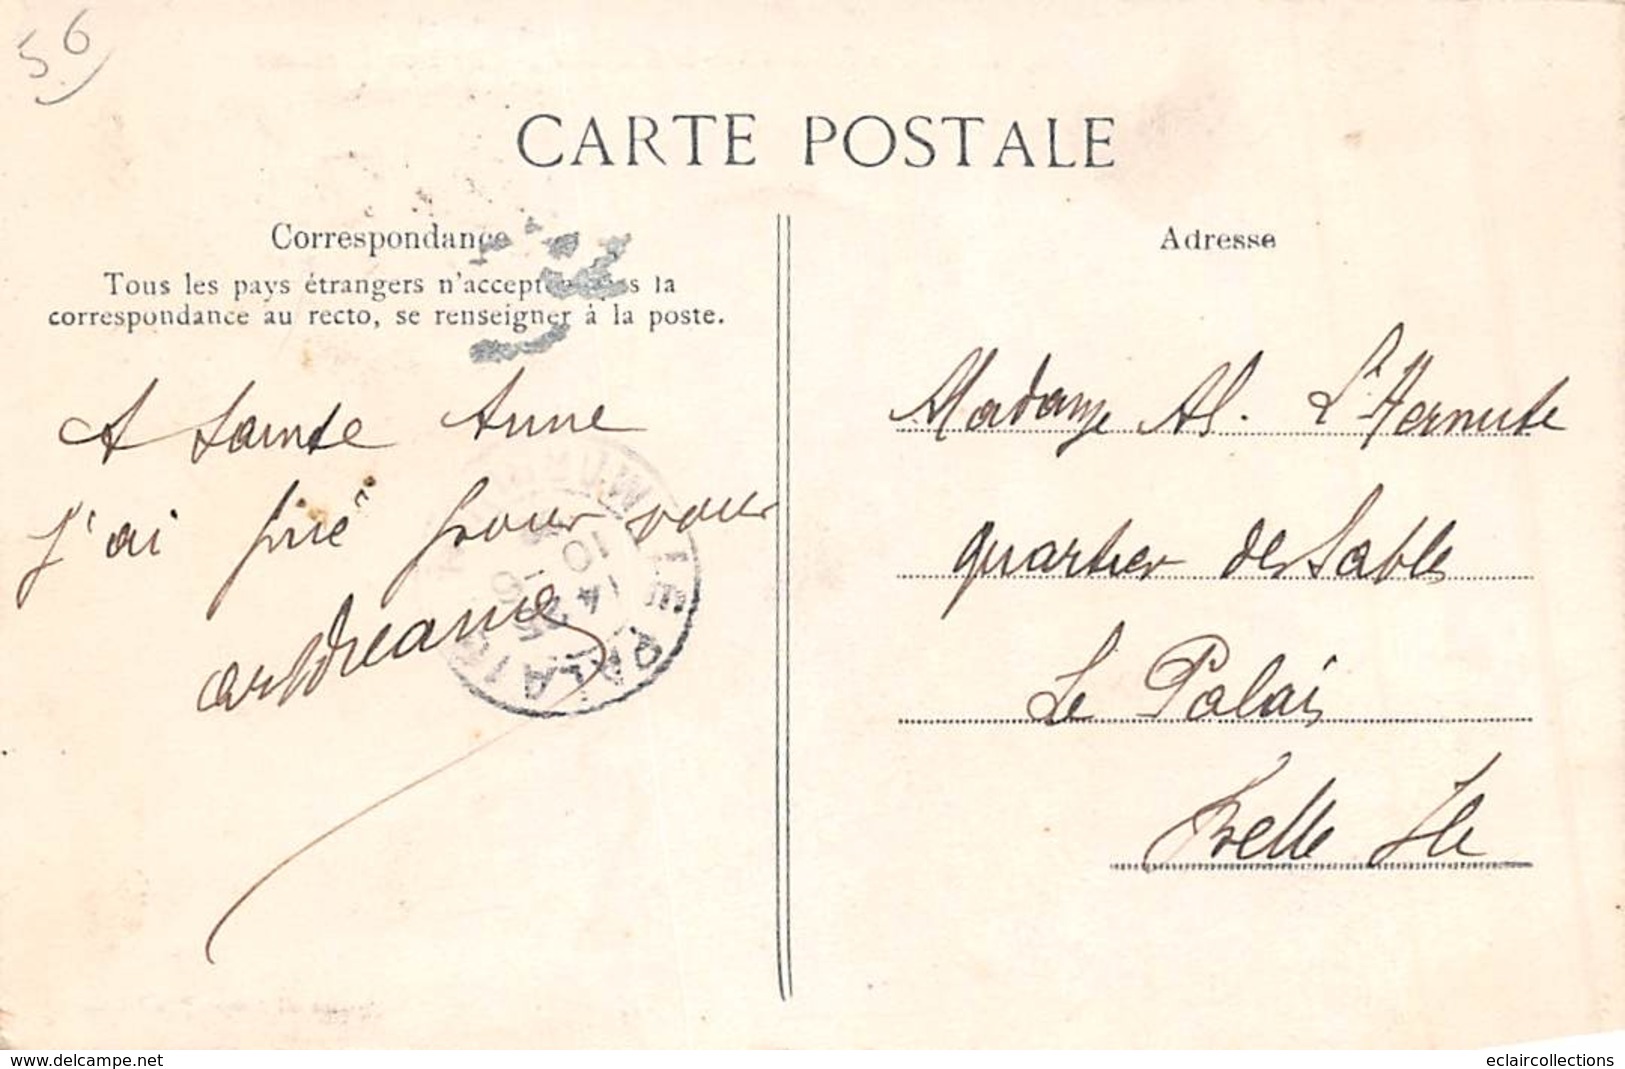 56
CARTE POSTALE
Correspondance
Tous les pays étrangers n'acceptent pas la
correspondance au recto, se renseigner à la poste.
A Sainte Anne
J'ai prié pour vous
Adresse
Madame Al. L'Hermite
quartier des Sables
Le Palais
Belle Ile
LE PALAIS
www.delcampe.net
eclaircollections